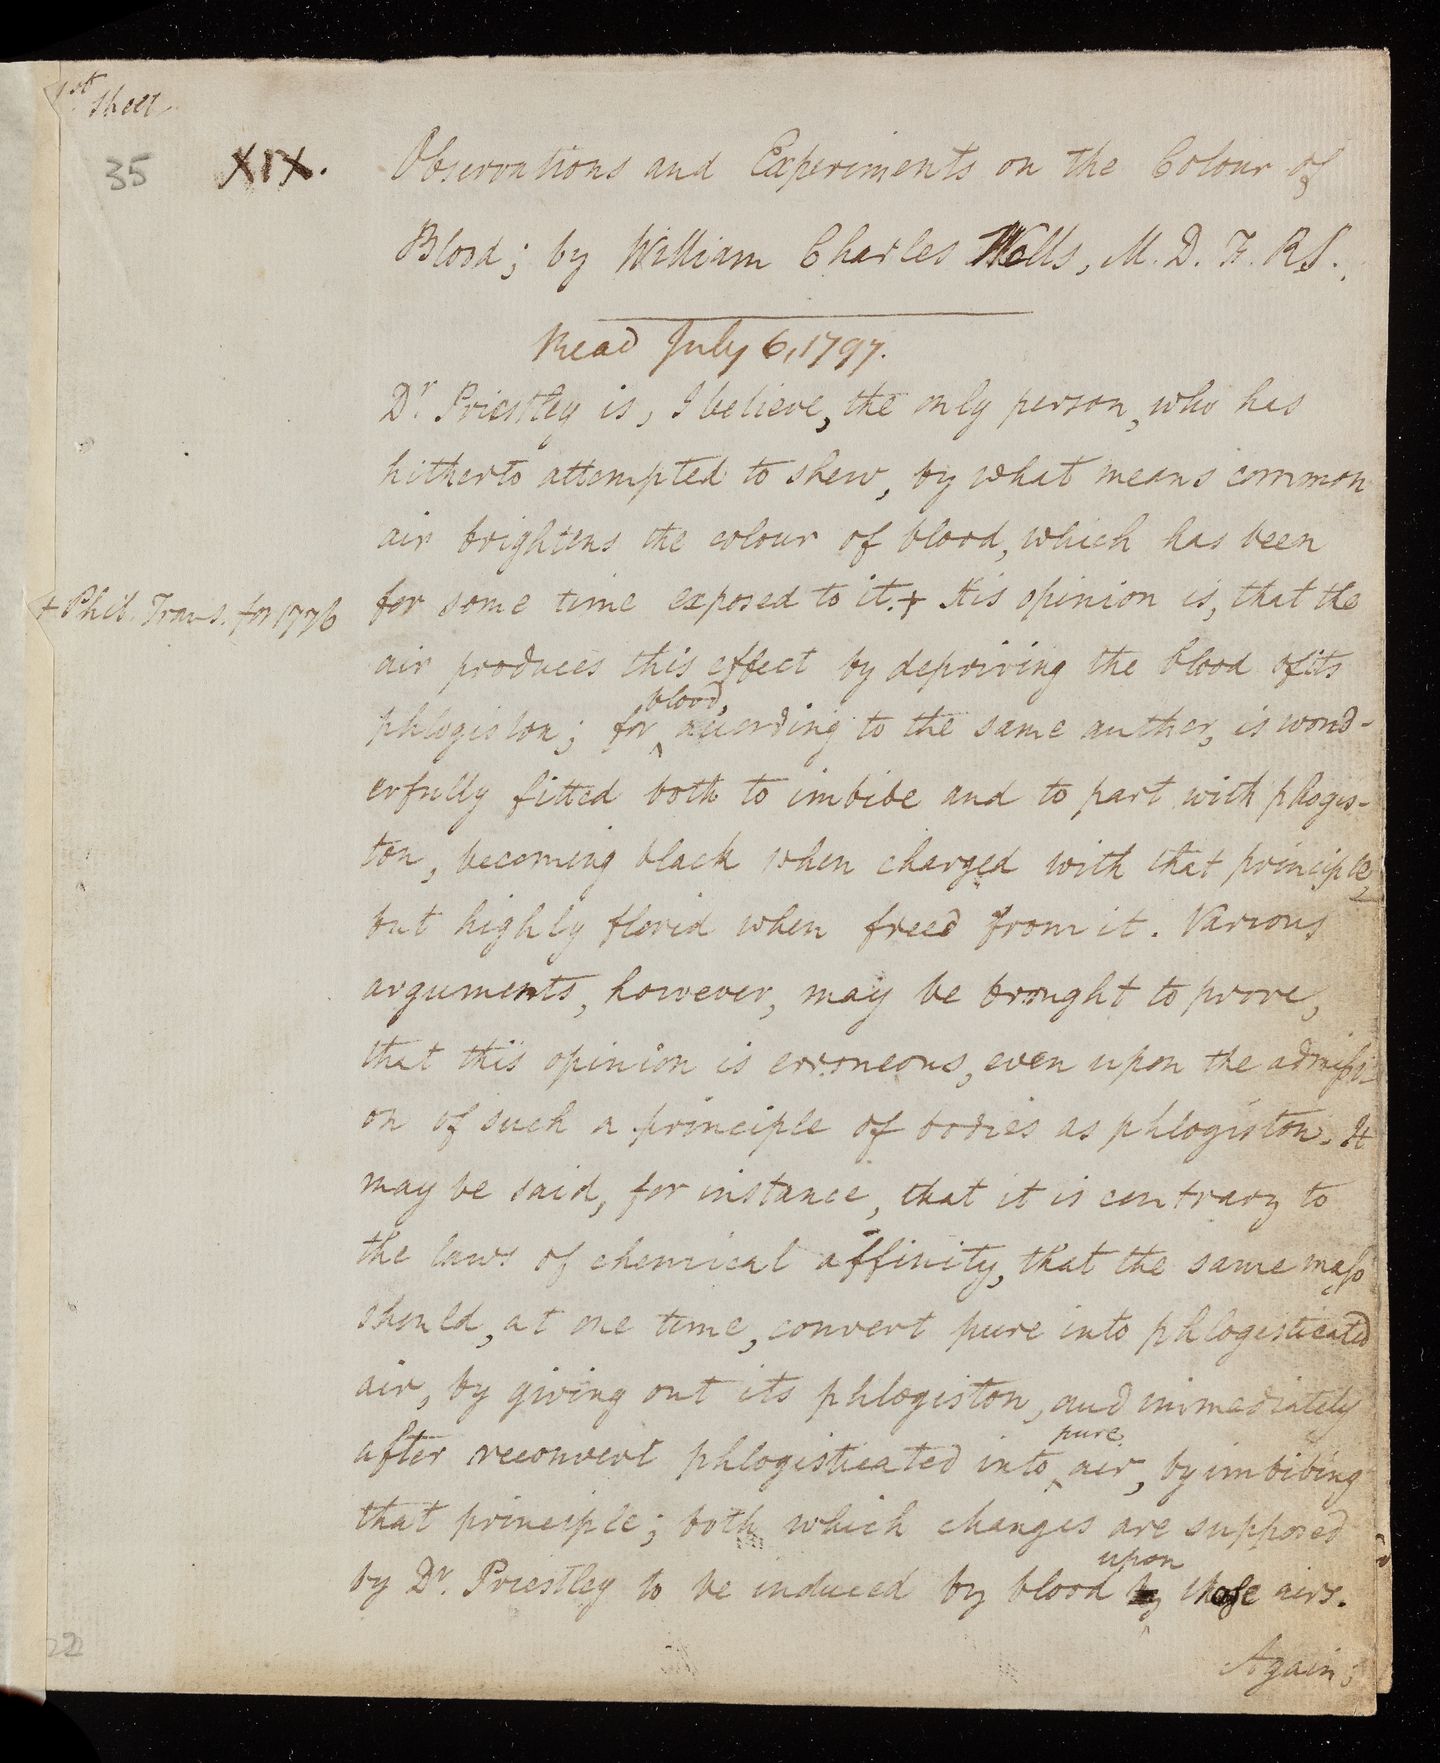 1st sheet
35 XIX. Observations and Experiments on the Colour of
Blood; by William Charles Wells, M. D. F. R S.
Read July 6, 1797.
Dr. Priestley is, I believe, the only person, who has
hitherto attempted to shew, by what means common
air brightens the colour of blood, which has been
for some time exposed to it.+ His opinion is, that the
+ Phil. Trans. for 1776
air produces this effect by depriving the blood of its
blood,
phlogiston; for ^ according to the same author, is wond-
erfully fitted both to imbibe and to part with phlogis-
ton, becoming black when charged with that principle,
but highly florid when freed from it. Various
arguments, however, may be brought to prove,
that this opinion is erroneous, even upon the admissi-
on of such a principle of bodies as phlogiston. It
may be said, for instance, that it is contrary to
the laws of chemical affinity, that the same mass
should, at one time, convert pure into phlogisticated
air, by giving out its phlogiston, and immediately
pure
after reconvert phlogisticated into ^ air, by imbibing
that principle; both which changes are supposed
upon
by Dr. Priestley to be induced by blood by ^ those airs.
Again;
22